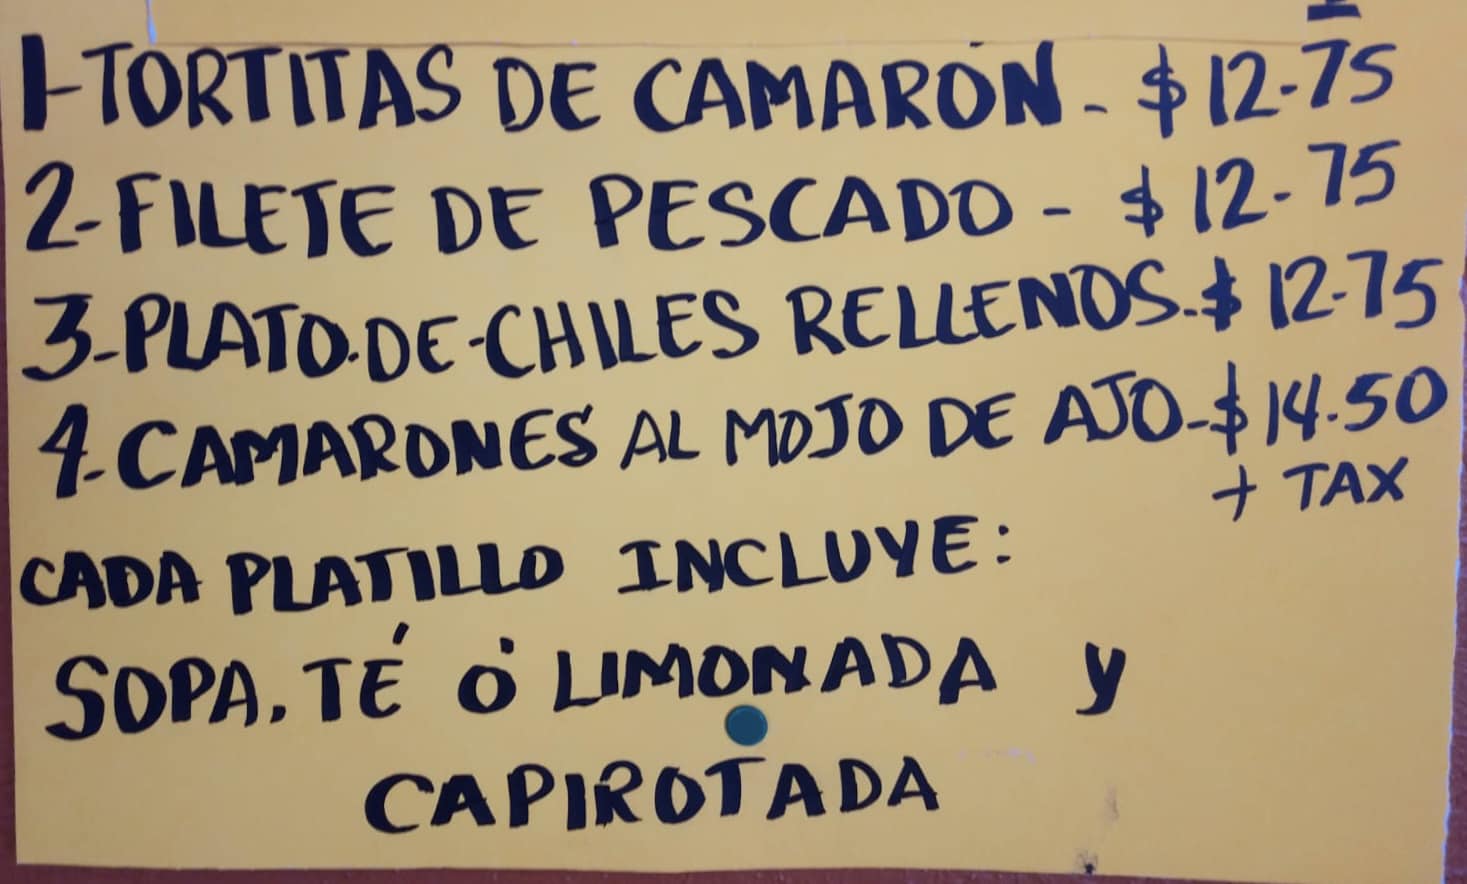 1-TORTITAS DE CAMARÓN - $12-75
2-FILETE DE PESCADO - $12-75
3-PLATO.DE-CHILES RELLENOS.-$12-75
4-CAMARONES AL MOJO DE AJO-$14.50
+ TAX
CADA PLATILLO INCLUYE:
SOPA, TÉ Ó LIMONADA Y
CAPIROTADA